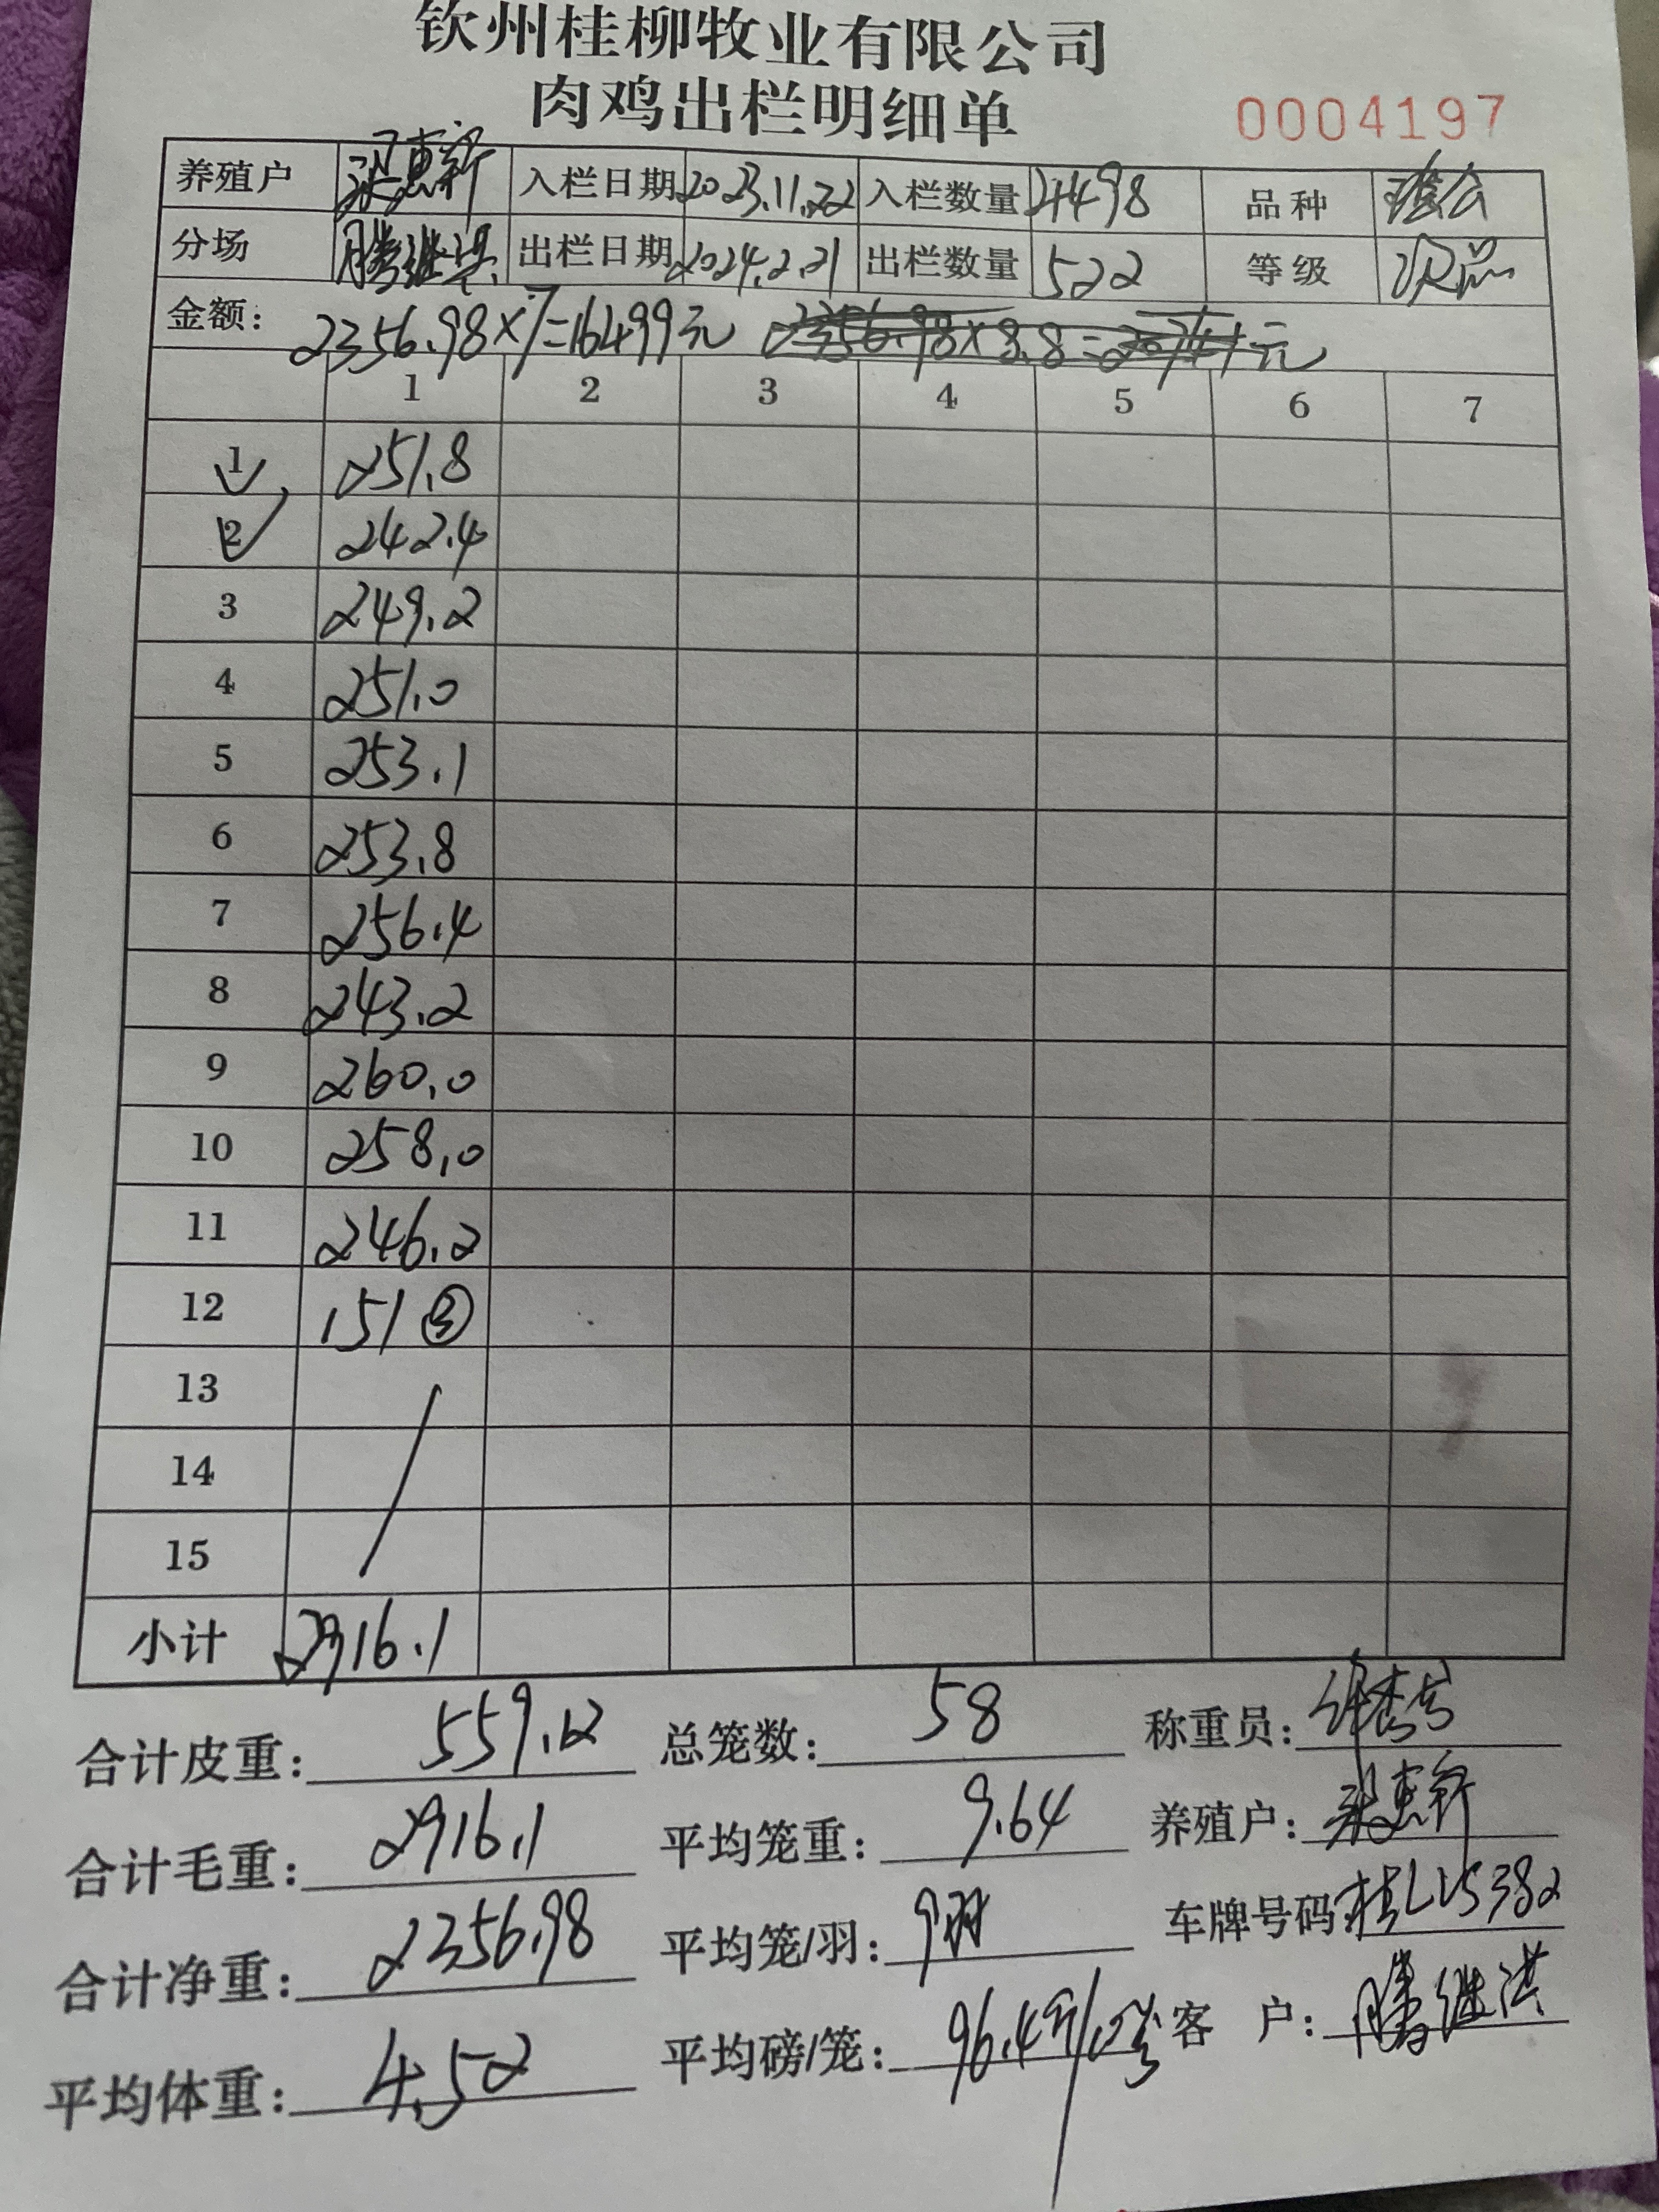 钦州桂柳牧业有限公司
肉鸡出栏明细单
0004197
养殖户 梁惠新 入栏日期 2023.11.22 入栏数量 4498 品种
分场 滕继洪 出栏日期 2024.2.21 出栏数量 522 等级 次品
金额: 2356.98×7=16499元 2356.98×8.8=20741元
1 2 3 4 5 6 7
1 251.8
2 242.4
3 249.2
4 251.0
5 253.1
6 253.8
7 256.4
8 243.2
9 260.0
10 258.0
11 246.2
12 151 ③
13
14
15
小计 2916.1
合计皮重: 559.12 总笼数: 58 称重员:
合计毛重: 2916.1 平均笼重: 9.64 养殖户: 梁惠新
合计净重: 2356.98 平均笼/羽: 9羽 车牌号码: 桂LVS382
平均体重: 4.52 平均磅/笼: 96.4斤/ 客 户: 滕继洪